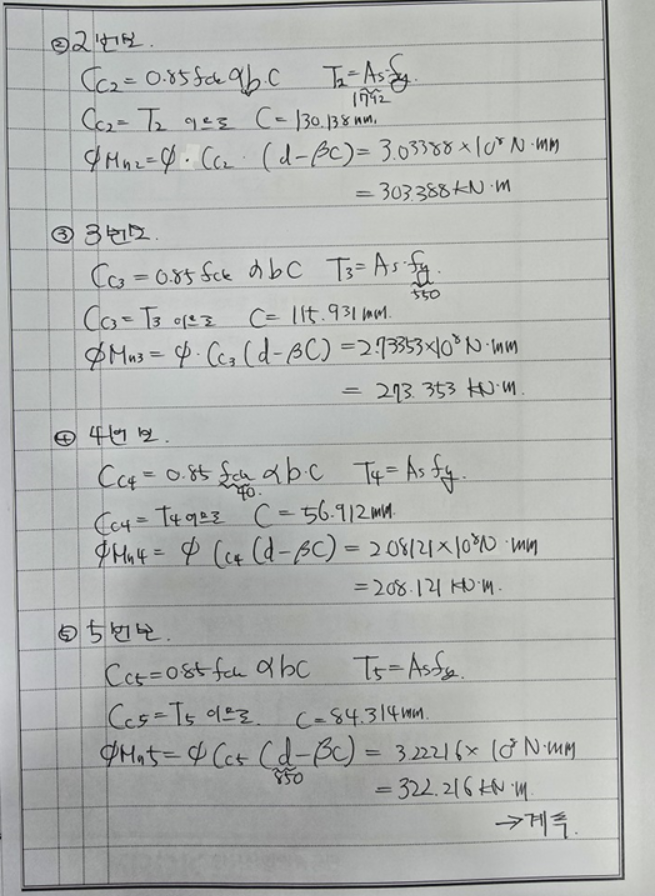 ② 2번보.
Cc2 = 0.85 fck αb·C T2 = As·fy.
1742
Cc2 = T2 이므로 C = 130.138mm.
φMn2 = φ·Cc2·(d-βC) = 3.03388×10⁸ N·mm
= 303.388 kN·m
③ 3번보.
Cc3 = 0.85 fck αbC T3 = As·fy.
550
Cc3 = T3 이므로 C = 115.931mm.
φMn3 = φ·Cc3(d-βC) = 2.73353×10⁸ N·mm
= 273.353 kN·m.
④ 4번보.
Cc4 = 0.85 fck αb·C T4 = As fy.
40.
Cc4 = T4 이므로 C = 56.912mm.
φMn4 = φ Cc4 (d-βC) = 2.08121×10⁸N·mm
= 208.121 kN·m.
⑤ 5번보.
Cc5 = 0.85 fck αbC T5 = Asfy.
Cc5 = T5 이므로. C = 84.314mm.
φMn5 = φ Cc5 (d-βC) = 3.22216×10⁸ N·mm
850
= 322.216 kN·m.
→계속.